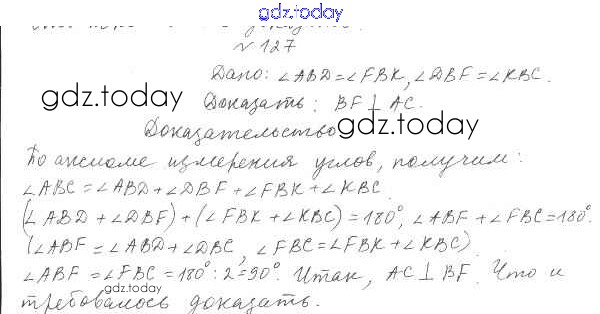 gdz.today
№127
Дано: ∠ABD = ∠FBK, ∠DBF = ∠KBC.
gdz.today
Доказать: BF ⊥ AC.
Доказательство
gdz.today
По аксиоме измерения углов, получим:
∠ABC = ∠ABD + ∠DBF + ∠FBK + ∠KBC
(∠ABD + ∠DBF) + (∠FBK + ∠KBC) = 180°, ∠ABF + ∠FBC = 180°.
(∠ABF = ∠ABD + ∠DBC, ∠FBC = ∠FBK + ∠KBC)
∠ABF = ∠FBC = 180° : 2 = 90°. Итак, AC ⊥ BF. Что и
gdz.today
требовалось доказать.